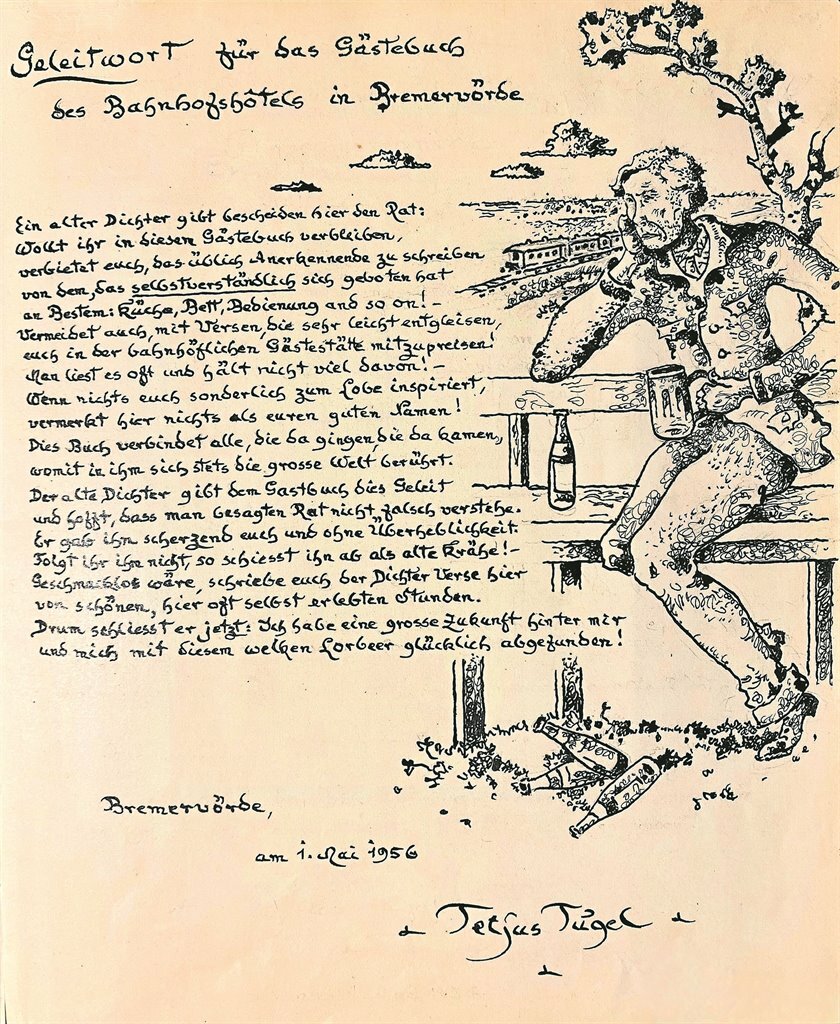 Geleitwort für das Gästebuch
des Bahnhofshôtels in Bremervörde
Ein alter Dichter gibt bescheiden hier den Rat:
Wollt ihr in diesem Gästebuch verbleiben,
verbietet euch, das üblich Anerkennende zu schreiben
von dem, das selbstverständlich sich geboten hat
an Bestem: Küche, Bett, Bedienung and so on! -
Vermeidet auch, mit Versen, die sehr leicht entgleisen,
euch in der bahnhöflichen Gästestätte mitzupreisen!
Man liest es oft und hält nicht viel davon! -
Wenn nichts euch sonderlich zum Lobe inspiriert,
vermerkt hier nichts als euren guten Namen!
Dies Buch verbindet alle, die da gingen, die da kamen,
womit in ihm sich stets die grosse Welt berührt.
Der alte Dichter gibt dem Gastbuch dies Geleit
und hofft, dass man besagten Rat nicht falsch verstehe.
Er gab ihn scherzend euch und ohne Überheblichkeit.
Folgt ihr ihn nicht, so schiesst ihn ab als alte Krähe! -
Geschmacklos wäre, schriebe euch der Dichter Verse hier
von schönen, hier oft selbst erlebten Stunden.
Drum schliesst er jetzt: Ich habe eine grosse Zukunft hinter mir
und mich mit diesem welken Lorbeer glücklich abgefunden!
Bremervörde,
am 1. Mai 1956
Tetjus Tügel